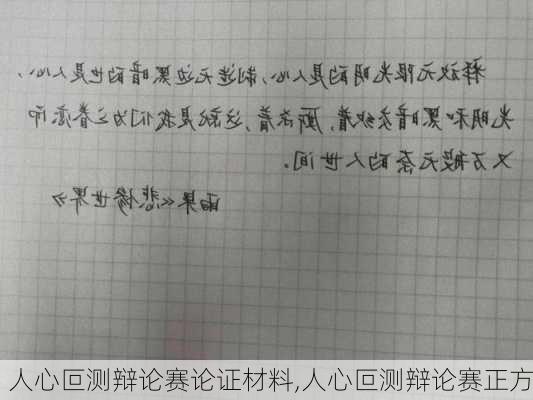 释放无限光明的是人心,制造无边黑暗的也是人心,
光明和黑暗交织着,厮杀着,这就是我们为之眷恋而
又万般无奈的人世间。
雨果《悲惨世界》
人心叵测辩论赛论证材料,人心叵测辩论赛正方